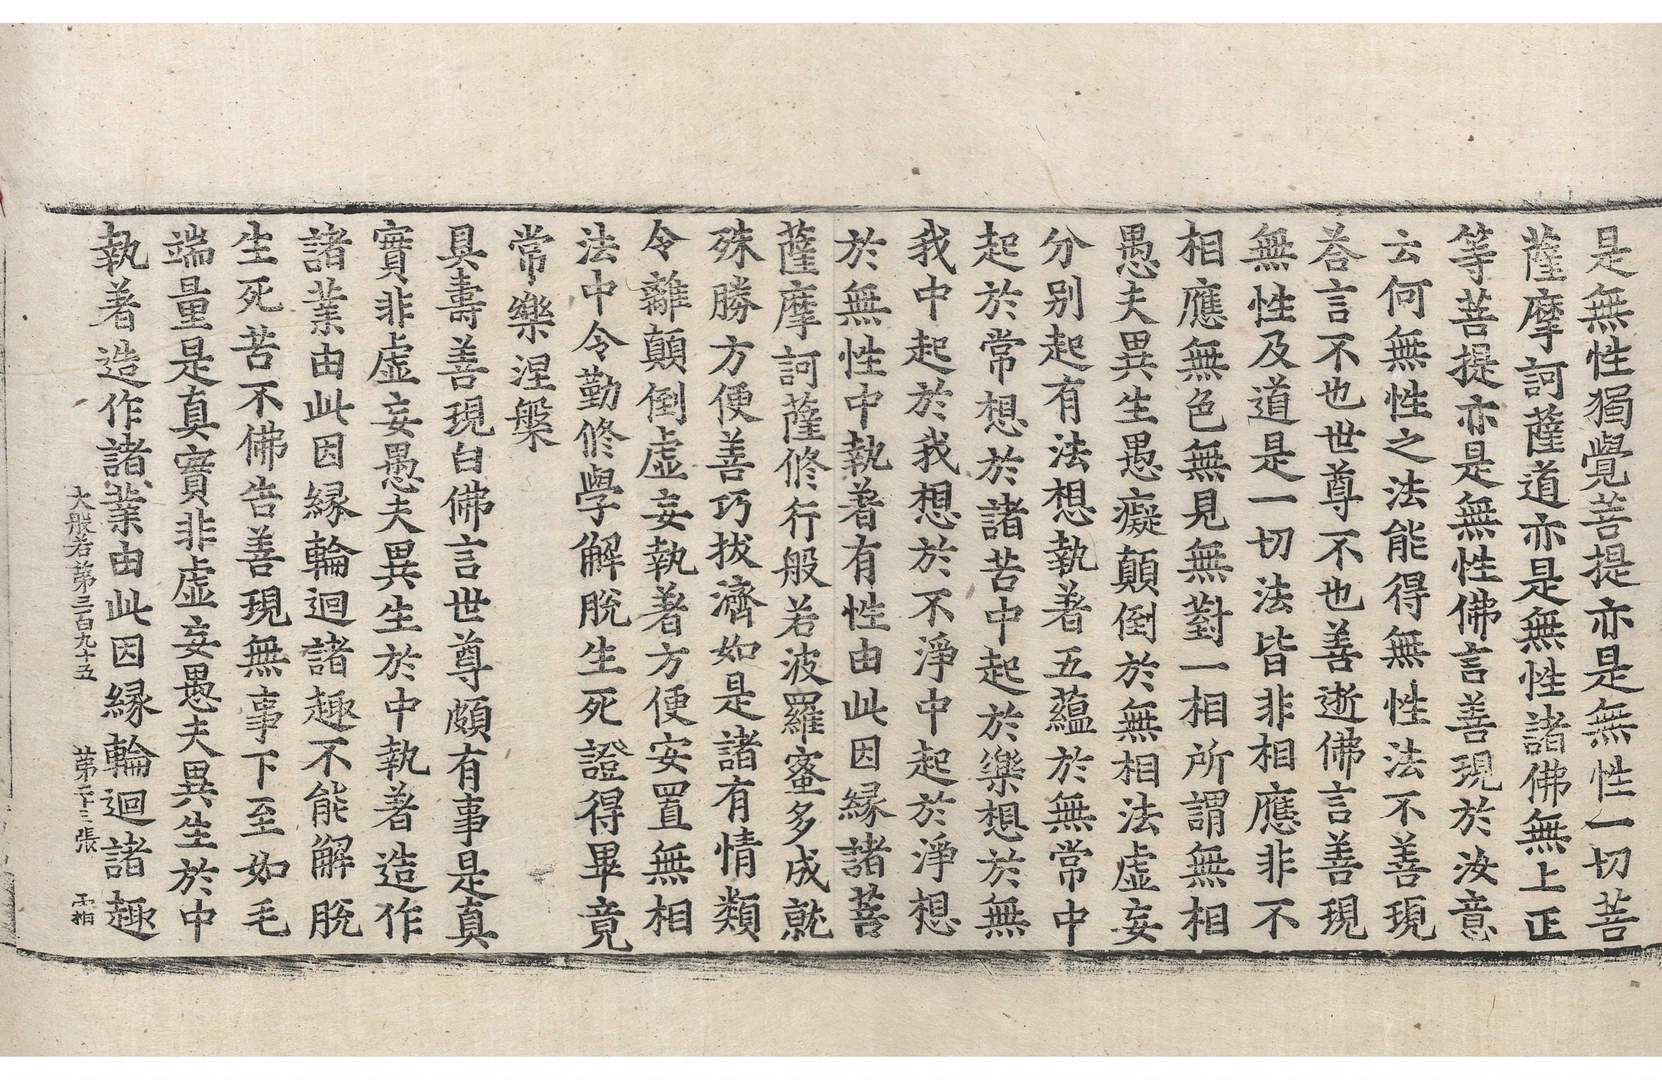 是無性獨覺菩提亦是無性一切菩
薩摩訶薩道亦是無性諸佛無上正
等菩提亦是無性佛言善現於汝意
云何無性之法能得無性法不善現
荅言不也世尊不也善逝佛言善現
無性及道是一切法皆非相應非不
相應無色無見無對一相所謂無相
愚夫異生愚癡顛倒於無相法虛妄
分别起有法想執著五蘊於無常中
起於常想於諸苦中起於樂想於無
我中起於我想於不淨中起於淨想
於無性中執著有性由此因緣諸菩
薩摩訶薩修行般若波羅蜜多成就
殊勝方便善巧拔濟如是諸有情類
令離顛倒虛妄執著方便安置無相
法中令勤修學解脫生死證得畢竟
常樂涅槃
具壽善現白佛言世尊頗有事是真
實非虛妄愚夫異生於中執著造作
諸業由此因緣輪迴諸趣不能解脫
生死苦不佛告善現無事下至如毛
端量是真實非虛妄愚夫異生於中
執著造作諸業由此因緣輪迴諸趣
大般若第三百九十五 第二十三張